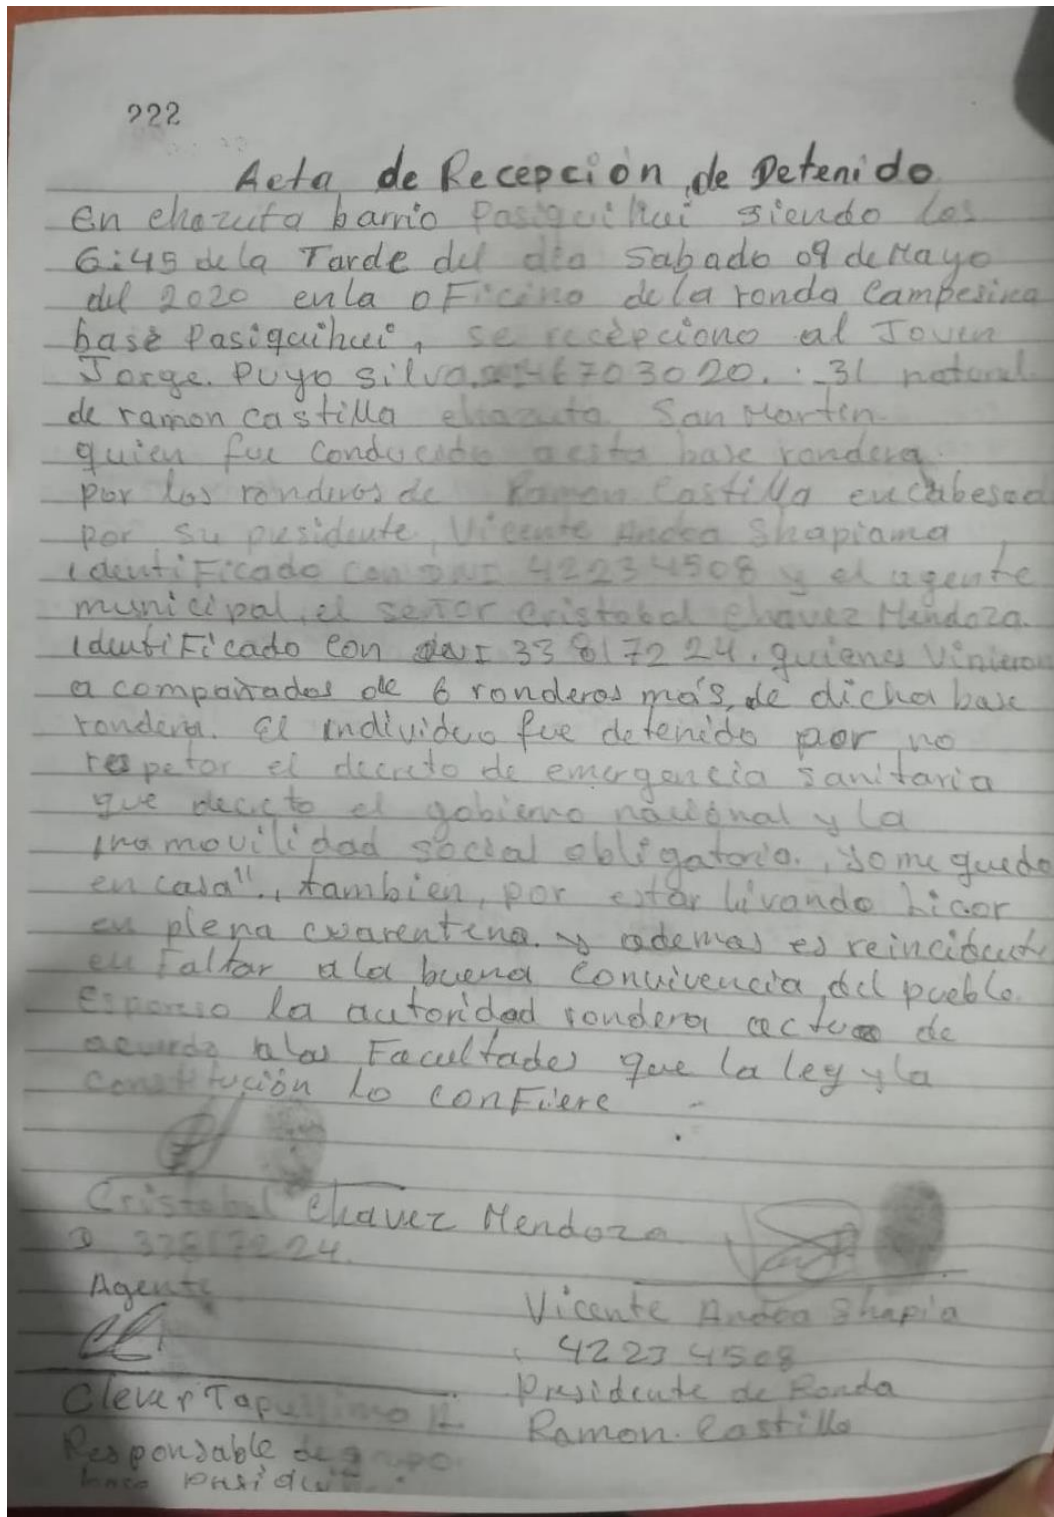 222
Acta de Recepción de Detenido
En chazuta barrio Pasiquihui siendo las
6:45 de la Tarde del dia Sabado 09 de Mayo
del 2020 en la oFicina de la ronda Campesina
base Pasiquihui, se recepciono al Joven
Jorge. Puyo silva. 46703020. 31 natural
de ramon castilla chazuta San Martin.
quien fue conducido a esta base rondera.
por los ronderos de Ramon Castilla encabesea
por su presidente, Vicente Andoa Shapiama
identiFicado con DNI 42234508 y el agente
municipal, el señor Cristobal Chavez Mendoza.
identiFicado con DNI 33817224. quienes vinieron
a compañados de 6 ronderos más, de dicha base
rondera. El individuo fue detenido por no
respetar el decreto de emergencia sanitaria
que decreto el gobierno nacional y la
inamovilidad social obligatoria., yo me quedo
en casa"., tambien, por estar livando Licor
en plena cuarentena. y ademas es reincidente
en Faltar a la buena convivencia del pueblo.
la autoridad rondera actua de
acuerdo a las Facultades que la ley y la
constitución lo conFiere
Cristobal Chavez Mendoza
D 33817224.
Agente
Vicente Andoa Shapia
42234508
Presidente de Ronda
Ramon. Castilla
Clever
Responsable de grupo
base